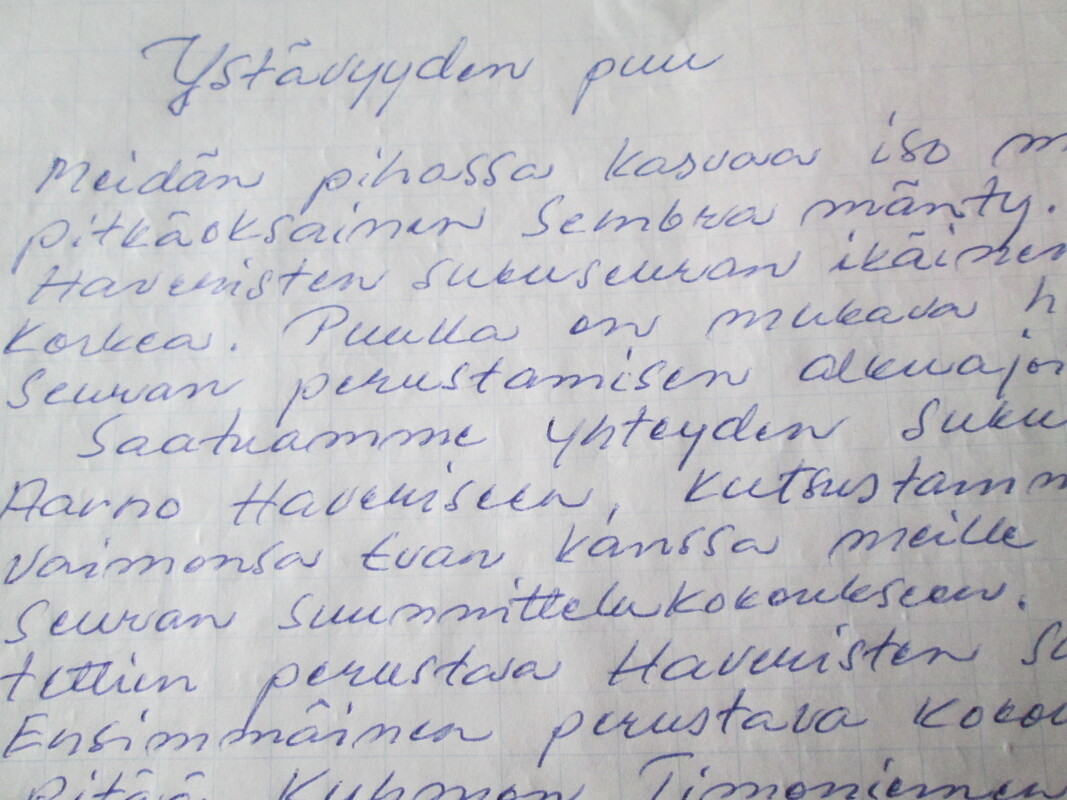 Ystävyyden puu
Meidän pihassa kasvaa iso m
pitkäoksainen Sembra mänty.
Haveristen sukuseuran ikäinen
korkea. Puulla on mukava h
seuran perustamisen alkuajoi
Saatuamme yhteyden suku
Aarno Haveriseen, kutsustamm
vaimonsa Evan kanssa meille
seuran suunnittelukokoukseen.
tettiin perustaa Haveristen su
Ensimmäinen perustava kokou
pitää Kuhmon Timoniemen